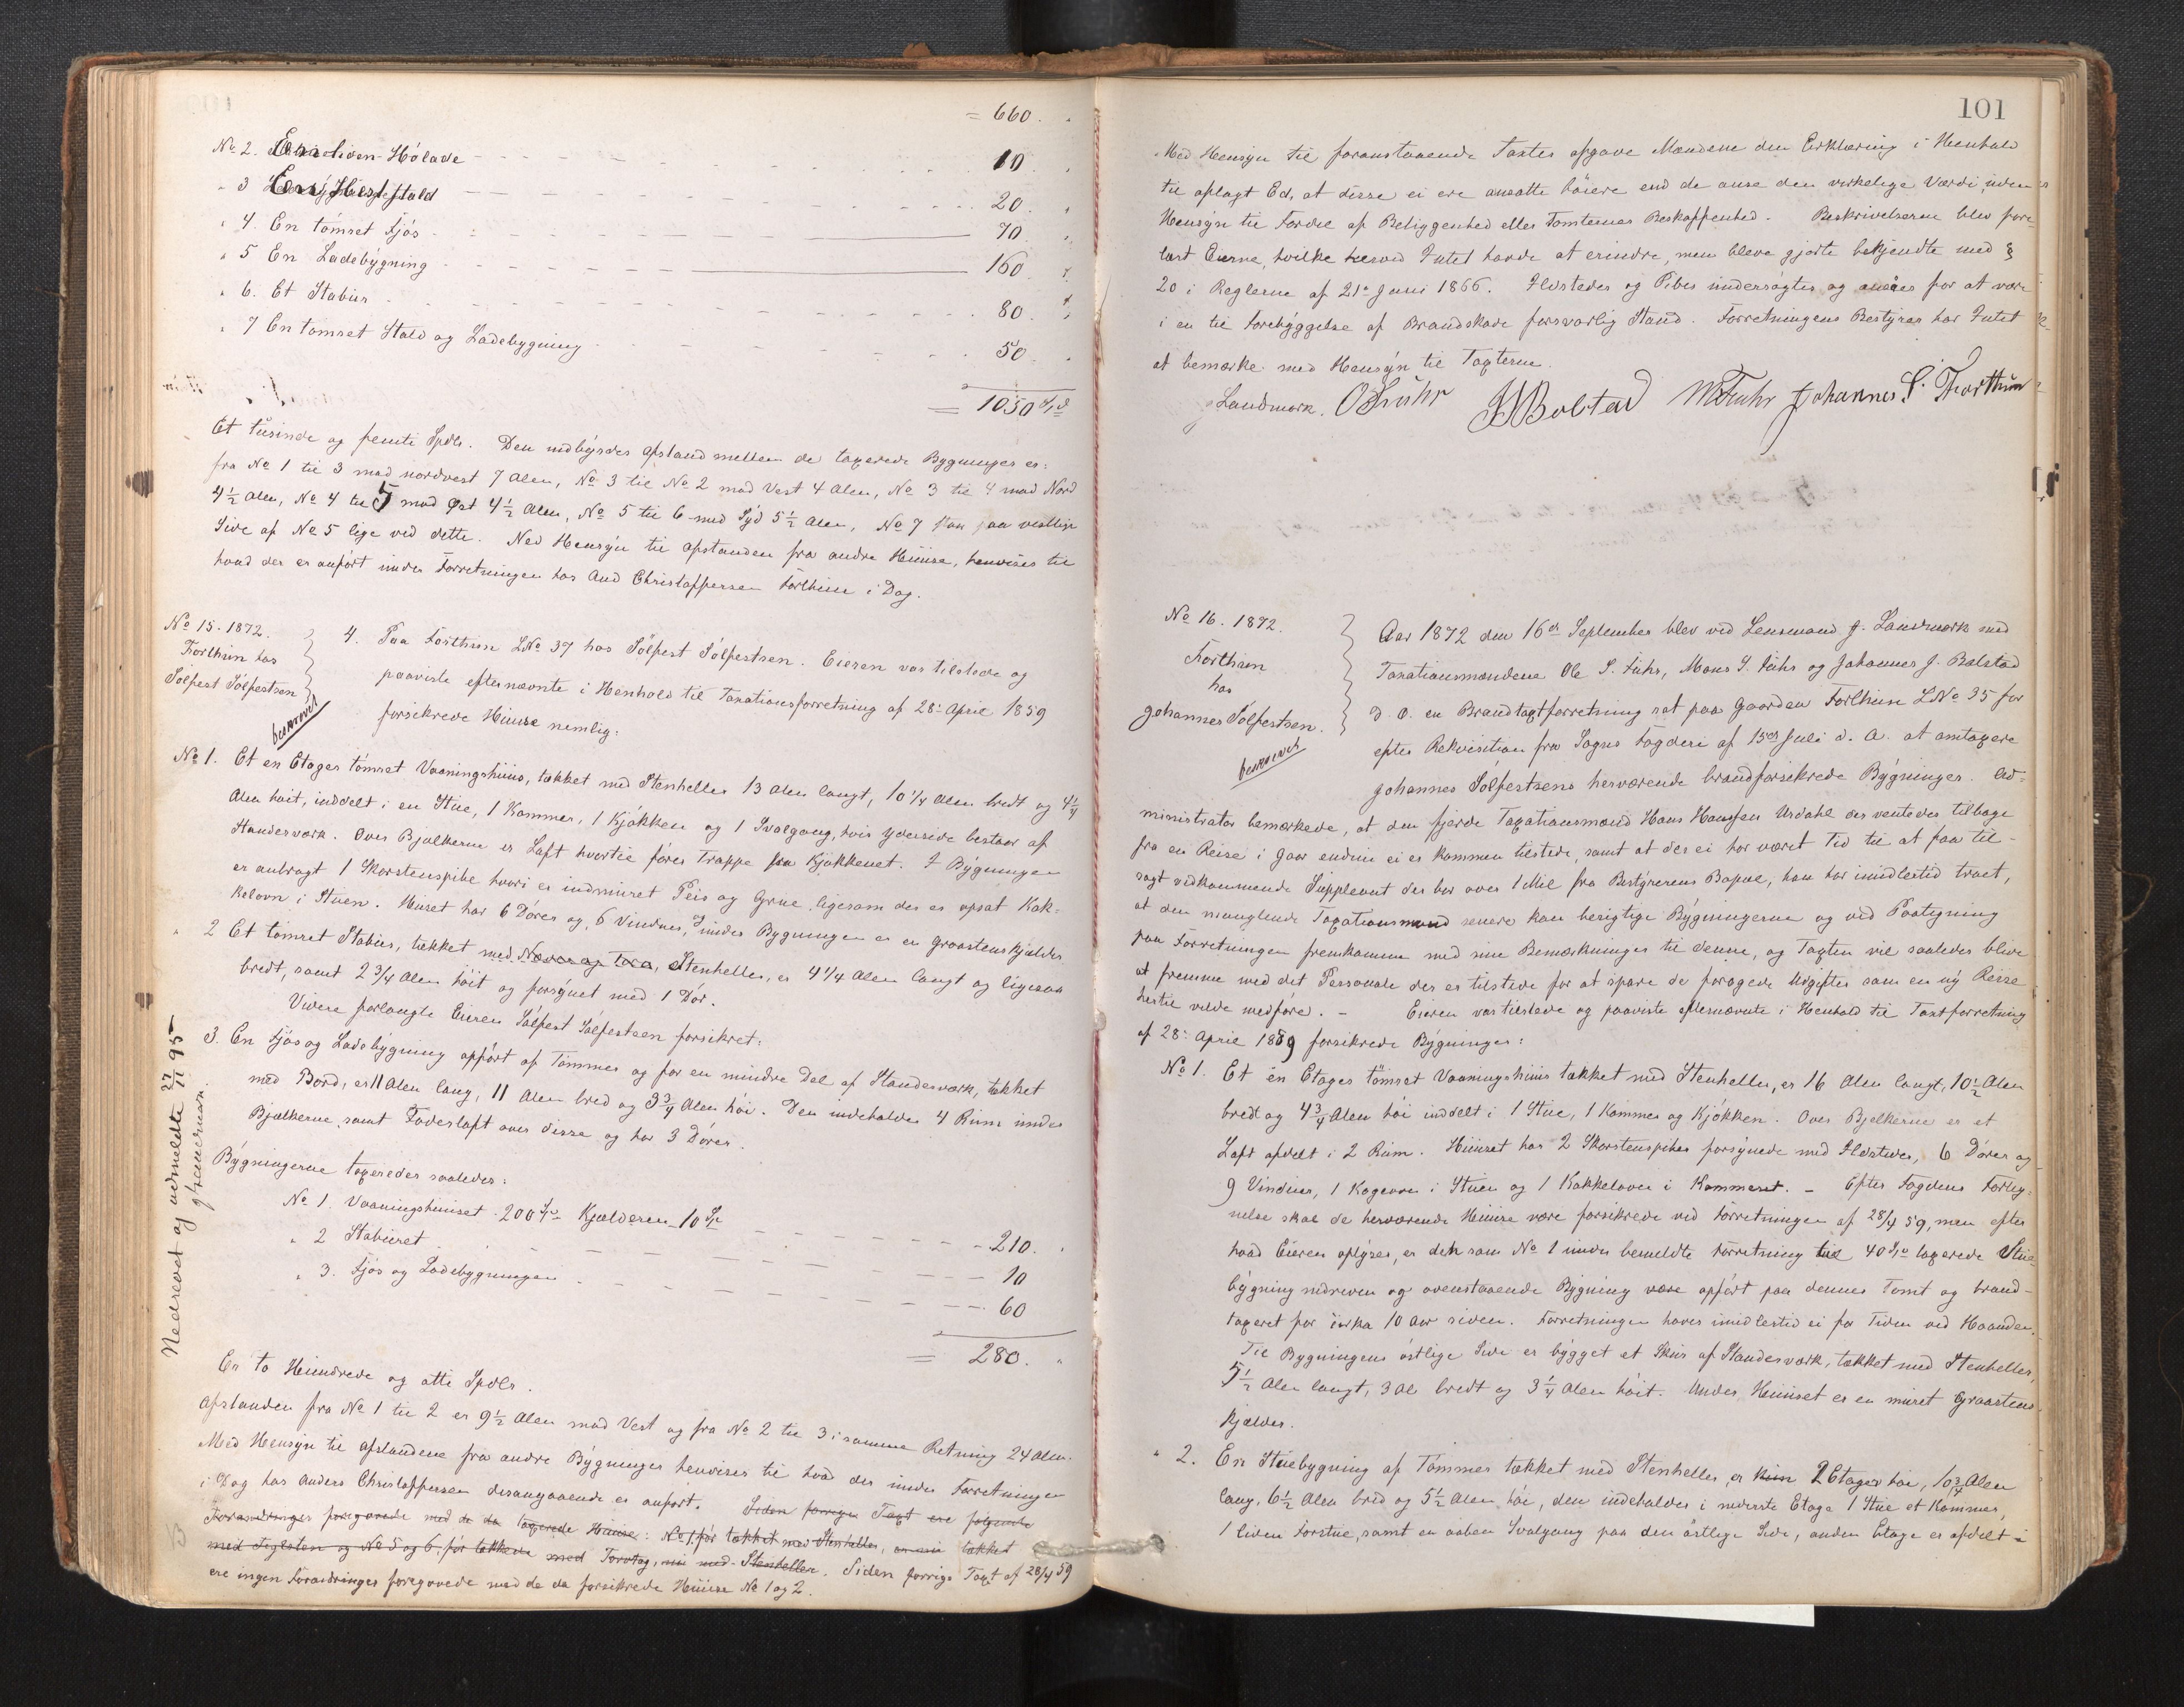 = 660. "
No 2. En liden Hölade - - - 10. "
" 3 En Hestestald - - - 20. "
" 4. En tömret Fjös - - - 70. "
" 5 En Ladebygning - - - 160. "
" 6. Et Stabur - - - 80. "
" 7 En tömret Stald og Ladebygning - - - 50. "
= 1050
Et tusinde og femti Spdlr. Den indbyrdes Afstand mellem de taxerede Bygninger er:
fra No 1 til 3 mod nordvest 7 Alen, No 3 til No 2 mod Vest 4 Alen, No 3 til 4 mod Nord
4 1/2 Alen, No 4 til 5 mod Øst 4 1/2 Alen, No 5 til 6 mod Syd 5 1/2 Alen, No 7 paa vestlige
Side af No 5 lige ved dette. Med Hensyn til Afstanden fra andre Huuse, henvises til
hvad der er anført under Forretningen hos And Christoffersen Forthun i Dag.
No 15. 1872.
Forthun hos
Solfest Solfestsen
beskrevet
4. Paa Forthun LNo 37 hos Solfest Solfestsen. Eieren var tilstede og
paaviste efternævnte i Henhold til Taxationsforretning af 28de April 1859
forsikrede Huuse nemlig:
No 1. Et en Etages tömret Vaaningshuus, tækket med Stenheller 13 Alen langt, 10 1/4 Alen bredt og 4 1/4
Alen höit, inddelt i en Stue, 1 Kammer, 1 Kjökken og 1 Svalgang, hvis Yderside bestaar af
Standerværk. Over Bjelkerne er Loft hvortil förer Trappe fra Kjökkenet. I Bygningen
er anbragt 1 Skorstenspibe hvori er indmuret Peis og Grue, ligesom der er opsat Kak-
kelovn i Stuen. Huset har 6 Dörer og 6 Vinduer, og under Bygningen er en Graastenskjælder.
" 2 Et tömret Stabur, tækket med Næver og Torv, Stenheller, er 4 1/4 Alen langt og ligesaa
bredt, samt 2 3/4 Alen höit og forsynet med 1 Dör.
Videre forlangte Eieren Solfest Solfestsen forsikret:
3. En Fjös og Ladebygning opfört af Tömmer og for en mindre Del af Standerværk, tækket
med Bord, er 11 Alen lang, 11 Alen bred og 3 3/4 Alen höi. Den indeholder 4 Rum under
Bjælkerne, samt Foderloft over disse og har 3 Dörer.
Bygningerne taxeredes saaledes:
No 1. Vaaningshuuset 200 Sp Kjælderen 10 Sp - - - 210. "
" 2 Staburet - - - 10
" 3. Fjös og Ladebygningen - - - 60
= 280. "
Er to Hundrede og otti Spdlr.
Afstanden fra No 1 til 2 er 9 1/2 Alen mod Vest og fra No 2 til 3 i samme Retning 24 Alen.
Med Hensyn til Afstandene fra andre Bygninger henvises til hvad der under Forretningen
i Dag hos Anders Christoffersen desangaaende er anfört. Siden forrige Taxt ere følgende
Forandringer foregaaede med de da taxerede Huuse: No 1, før tækket med Stenheller, er nu tækket
med Tegelsten og No 5 og 6, før tækkede med Torvtag, nu med Stenheller. Siden forrige Taxt af 28/4 59
ere ingen Forandringer foregaaede med de da forsikrede Huuse No 1 og 2.
Nedrevet og udmeldte 27/11 95
101
Med Hensyn til foranstaaende Taxter afgave Mændene den Erklæring i Henhold
til aflagt Ed, at disse ei ere ansatte höiere end de anse den virkelige Værdi, uden
Hensyn til Fordel af Beliggenhed eller Tomternes Beskaffenhed. Beskrivelserne blev fore-
læst Eierne, hvilke herved Intet havde at erindre, men bleve gjorte bekjendte med §
20 i Reglerne af 21de Juni 1866. Ildsteder og Piber undersøgtes og ansees for at være
i en til Forebyggelse af Brandskade forsvarlig Stand. Forretningens Bestyrer har Intet
at bemærke med Hensyn til Taxterne.
J Landmark. O S Fuhr J J Bolstad M S Fuhr Johannes S. Forthun
No 16. 1872.
Forthun
hos
Johannes Solfestsen.
beskrevet
Aar 1872 den 16de September blev ved Lensmand J. Landmark med
Taxationsmændene Ole S. Fuhr, Mons S. Fuhr og Johannes J. Bolstad
d. O. en Brandtaxtforretning sat paa Gaarden Forthun LNo 35 for
efter Rekvisition fra Sogns Fogderi af 15de Juli d. A. at omtaxere
Johannes Solfestsens herværende brandforsikrede Bygninger. Ad-
ministrator bemærkede, at den fjerde Taxationsmand Hans Hansen Urdahl der ventedes tilbage
fra en Reise i Gaar endnu ei er kommen tilstede, samt at der ei har været Tid til at faa til-
sagt vedkommende Suppleant der bor over 1 Mil fra Bestyrerens Bopæl, han har imidlertid troet,
at den manglende Taxationsmand senere kan besigtige Bygningerne og ved Paategning
paa Forretningen fremkomme med sine Bemærkninger til denne, og Taxten vil saaledes blive
at fremme med det Personale der er tilstede for at spare de forøgede Udgifter som en ny Reise
hertil vilde medføre. - Eieren var tilstede og paaviste efternævnte i Henhold til Taxtforretning
af 28de April 1859 forsikrede Bygninger:
No 1. Et én Etages tömret Vaaningshuus tækket med Stenheller, er 16 Alen langt, 10 1/2 Alen
bredt og 4 3/4 Alen höi inddelt i 1 Stue, 1 Kammer og Kjökken. Over Bjelkerne er et
Loft afdelt i 2 Rum. Huuset har 2 Skorstenspiber forsynede med Ildsteder, 6 Dörer og
9 Vinduer, 1 Kogeovn i Stuen og 1 Kakkelovn i Kammeret. - Efter Fogdens Forteg-
nelse skal de herværende Huuse være forsikrede ved Forretningen af 28/4 59, men efter
hvad Eieren oplyser, er den som No 1 under bemeldte Forretning til 40 Sp taxerede Stue-
bygning nedreven og ovenstaaende Bygning være opfört paa dennes Tomt og brand-
taxeret for cirka 10 Aar siden. Forretningen haves imidlertid ei for Tiden ved Haanden.
Til Bygningens östlige Side er bygget et Skur af Standerværk, tækket med Stenheller,
5 1/2 Alen langt, 3 Al bredt og 3 1/4 Alen höit. Under Huuset er en muret Graastens
Kjælder.
" 2. En Stuebygning af Tömmer tækket med Stenheller, er kun 2 Etager höi, 10 3/4 Alen
lang, 6 1/2 Alen bred og 5 1/2 Alen höi, den indeholder i nederste Etage 1 Stue et Kammer,
1 liden Forstue, samt en aaben Svalgang paa den östlige Side, anden Etage er afdelt i